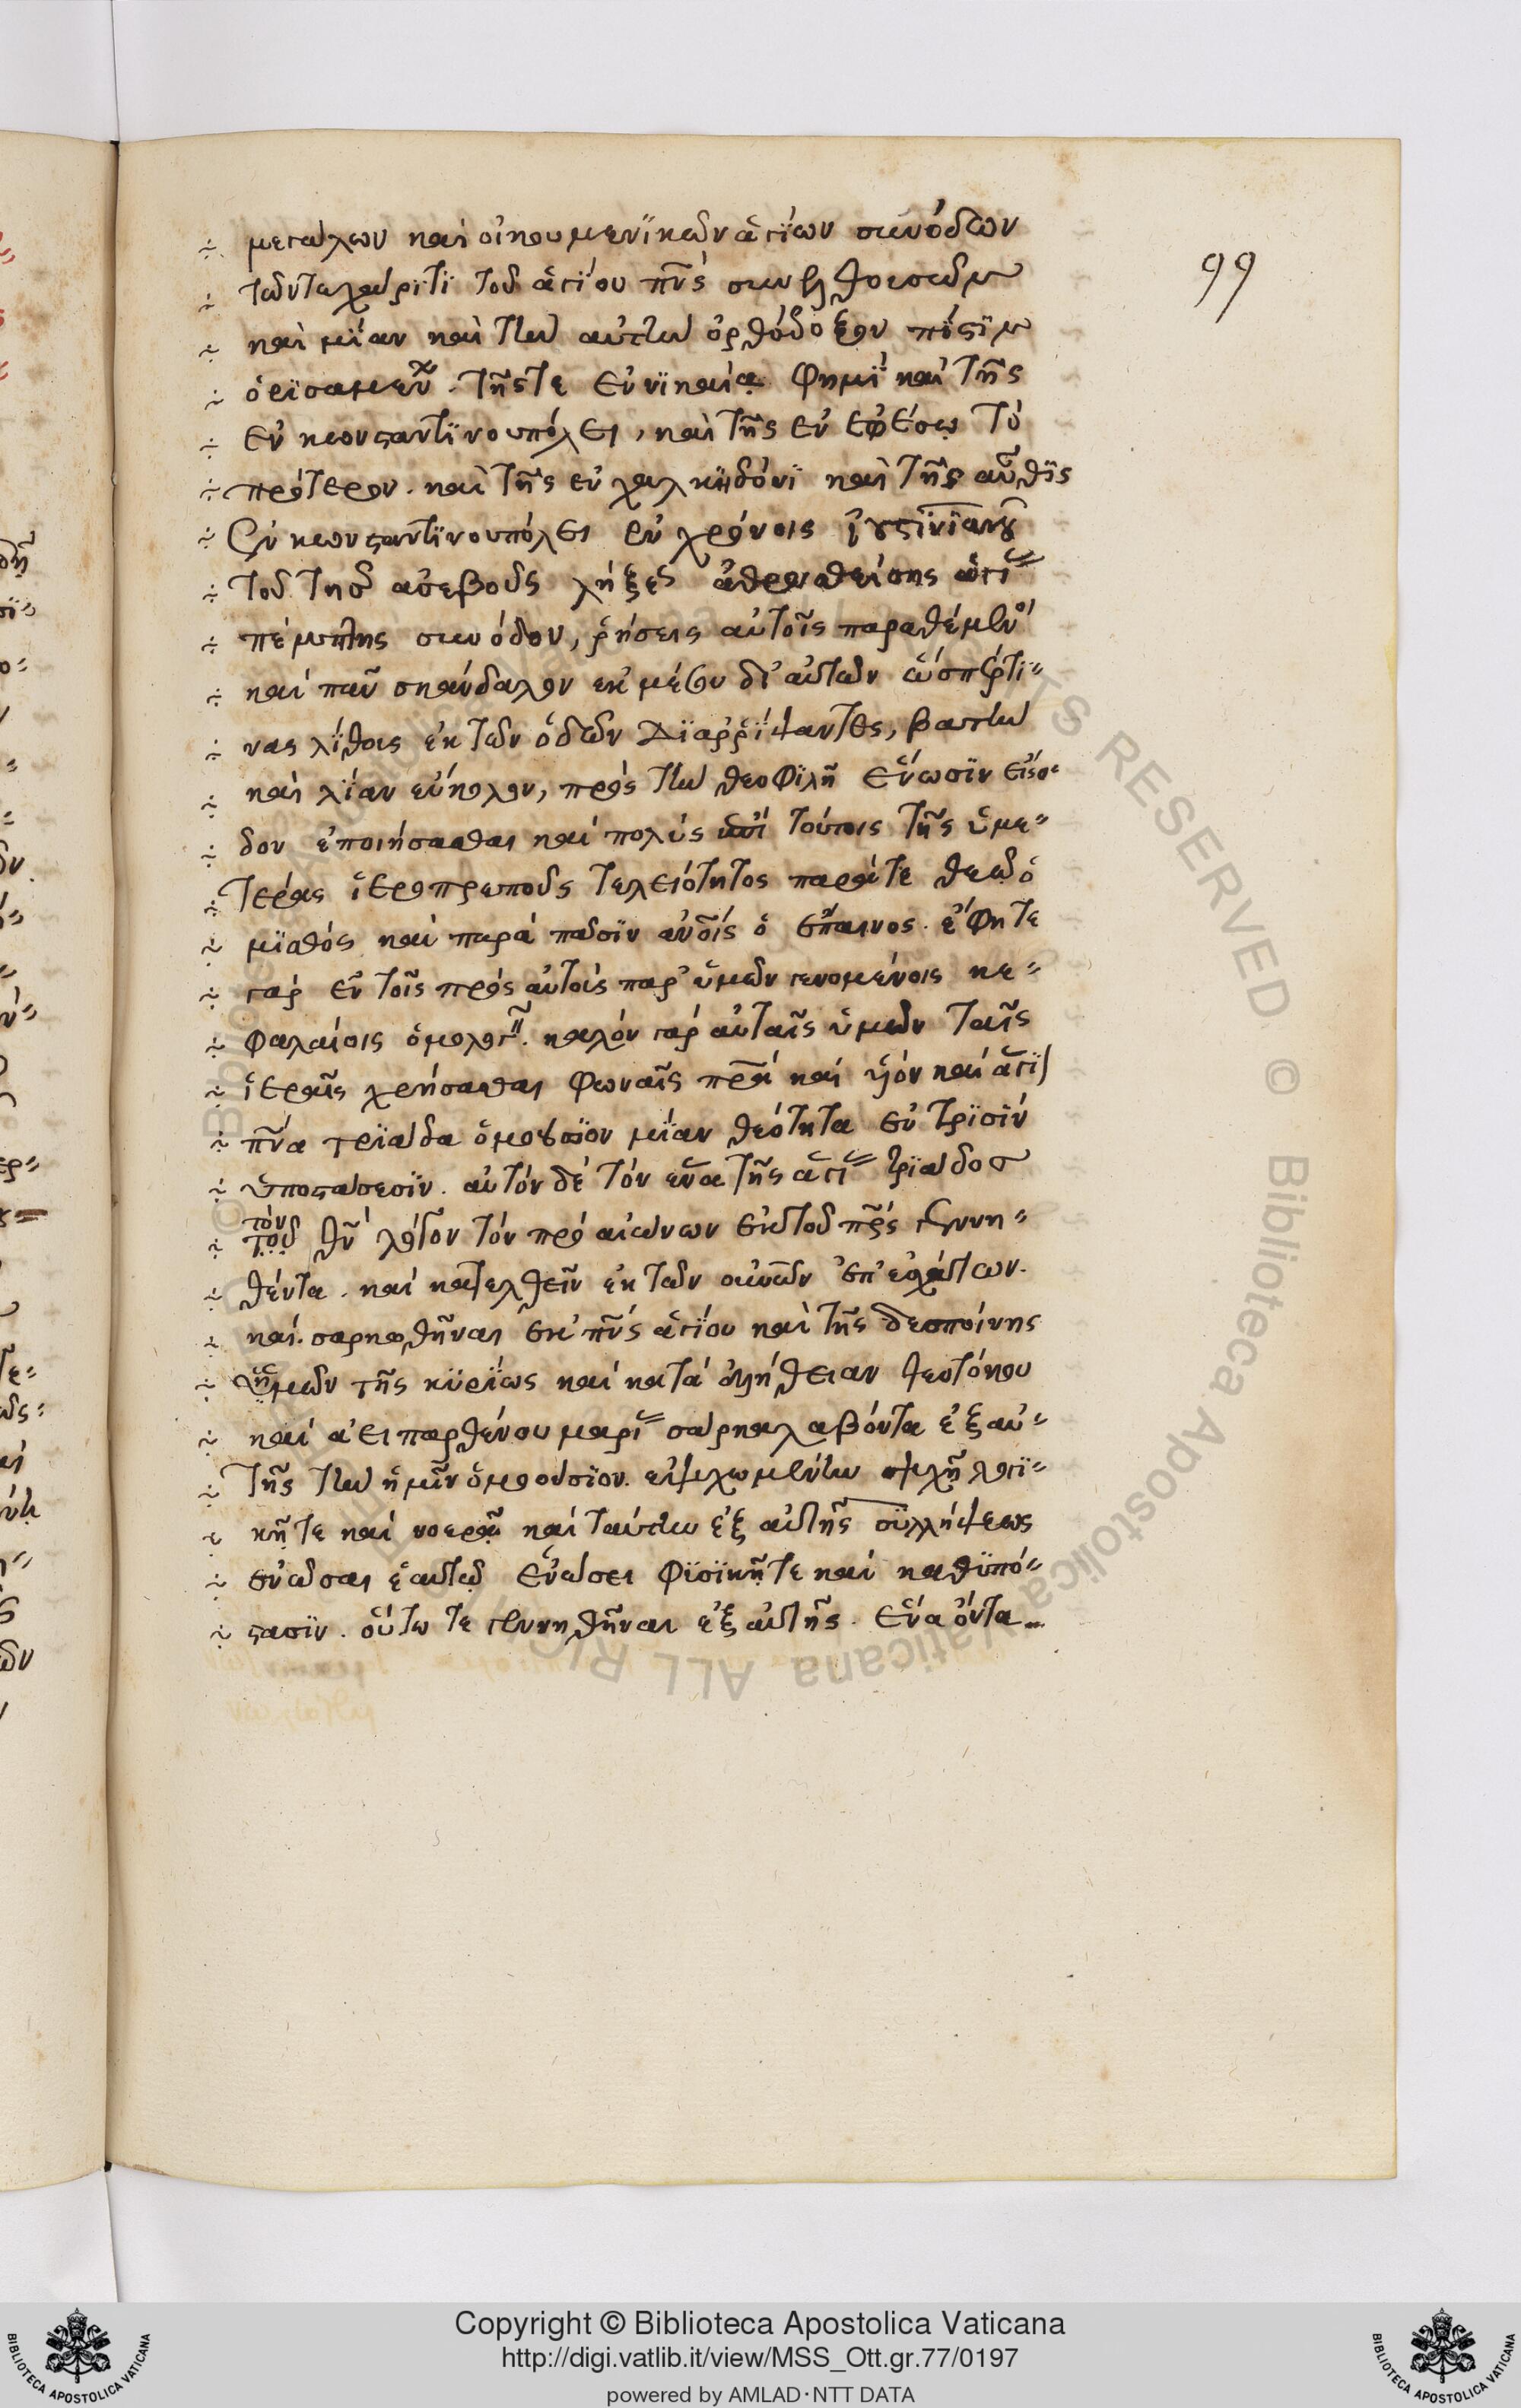 μεγάλων καὶ οἰκουμενϊκῶν ἁγΐων συνόδων
99
τῶν τε χάρϊτϊ τοῦ ἁγΐου πνς συνελθουσῶν
καὶ μΐαν καὶ τὴν αὐτὴν ὀρθόδοξον πΐστϊν
ὁρϊσαμεν τῆς τε ἐν νϊκαία φημῒ καὶ τῆς
ἐν κωνσταντϊνουπόλει, καὶ τῆς ἐν ἐφέσω τὸ
πρότερον. καὶ τῆς ἐν χαλκηδόνϊ καὶ τῆς αὖθϊς
ἐν κωνσταντϊνουπόλει ἐν χρόνοις ϊουστϊνϊανοῦ
τοῦ τῆς ἀσεβοῦς λήξεως ἀθροισθείσης ἁγΐ
πέμπτης συνόδου, ῥήσεις αὐτοῖς παραθέμενοι
καὶ πᾶν σκάνδαλον ἐκ μέσου δι' αὐτῶν ὥσπερ τϊ
νας λΐθους ἐκ τῶν ὁδῶν διαρρΐψαντες, βατὴν
καὶ λΐαν εὔκολον, πρὸς τὴν θεοφϊλῆ ἕνωσϊν εἴσο
δον ἐποιήσασθαι καὶ πολὺς ἐπὶ τούτοις τῆς ὑμε
τέρας ἱεροπρεποῦς τελειότητος παρά τε θεῷ ὁ
μϊσθός καὶ παρὰ πᾶσϊν αὐτοῖς ὁ ἔπαινος. ἔφητε
γὰρ ἐν τοῖς πρὸς αὐτοὺς παρ' ὑμῶν γενομένοις κε
φαλαίοις ὁμολογ. καλὸν γὰρ αὐταῖς ὑμῶν ταῖς
ἱεραῖς χρήσασθαι φωναῖς πρα καὶ υἱὸν καὶ ἅγϊ
πνα τρϊάδα ὁμοούσϊον μΐαν θεότητα ἐν τρϊσῒν
ὑποστάσεσϊν. αὐτὸν δὲ τὸν ἕνα τῆς ἁγΐ τρϊάδος
τὸν
τοῦ θν λόγον τὸν πρὸ αἰώνων ἐκ τοῦ πρς γεννη
θέντα. καὶ κατελθεῖν ἐκ τῶν οὐνῶν ἐπ' ἐσχάτων.
καὶ σαρκωθῆναι ἐκ πνς ἁγΐου καὶ τῆς δεσποίνης
ἡμῶν τῆς κϋρΐως καὶ κατὰ ἀλήθειαν θεοτόκου
καὶ ἀειπαρθένου μαρΐ σάρκα λαβόντα ἐξ αὐ
τῆς τὴν ἡμῖν ὁμοούσϊον. ἐψυχωμένην ψυχῇ λογϊ
κῇ τε καὶ νοερᾷ καὶ ταύτην ἐξ αὐτῆς σϋλλήψεως
ἑνῶσαι ἑαυτῷ ἑνώσει φϋσϊκῇ τε καὶ καθϋπό
στασϊν. οὕτω τε γεννηθῆναι ἐξ αὐτῆς. ἕνα ὄντα
Copyright © Biblioteca Apostolica Vaticana
http://digi.vatlib.it/view/MSS_Ott.gr.77/0197
powered by AMLAD·NTT DATA